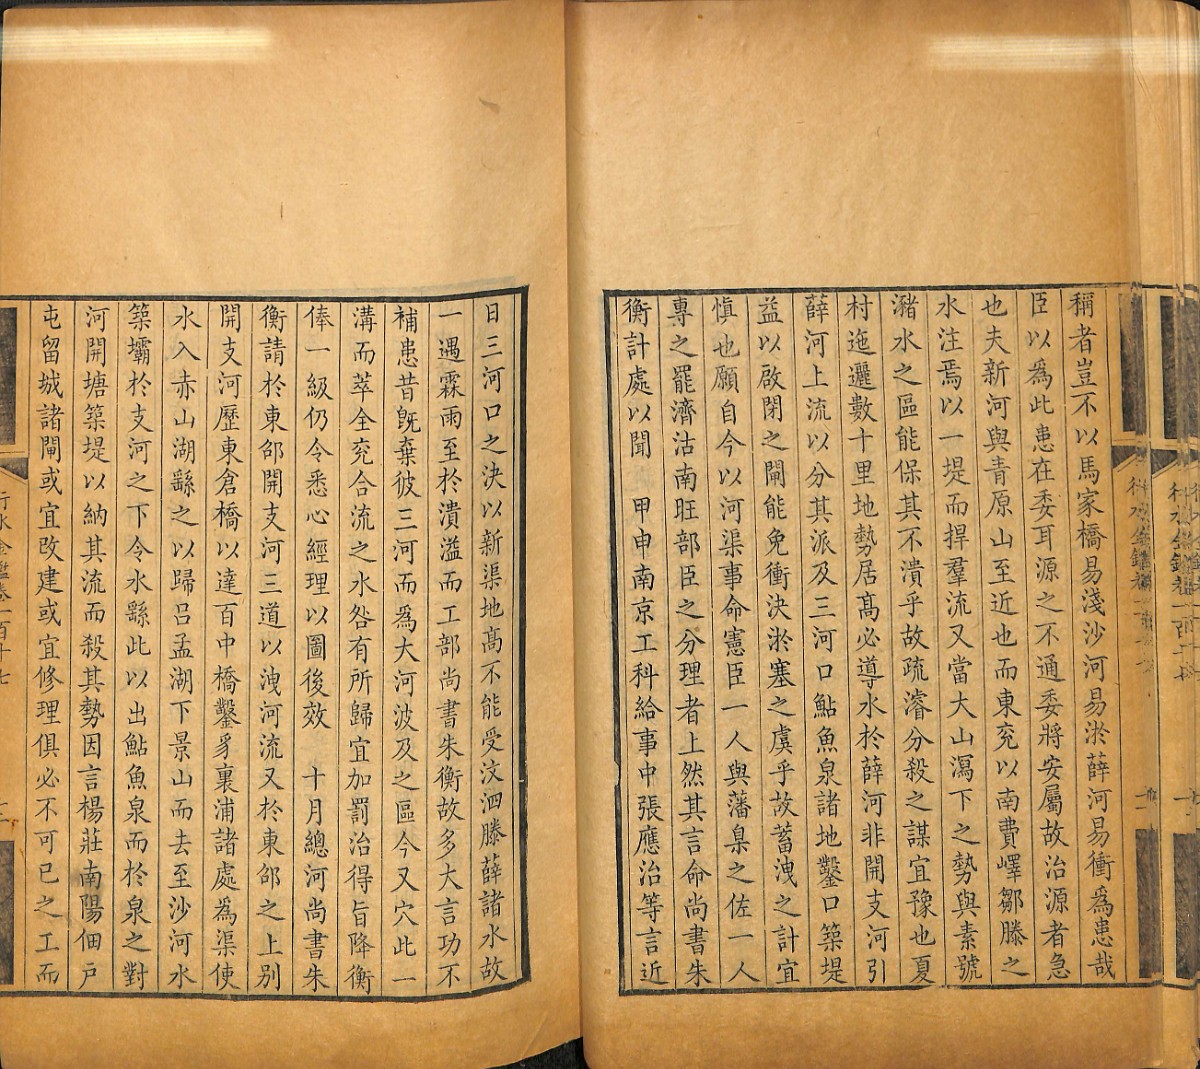 稱者豈不以馬家橋易淺沙河易淤薛河易衝爲患哉
臣以爲此患在委耳源之不通委將安屬故治源者急
也夫新河與青原山至近也而東兖以南費嶧鄒滕之
水注焉以一堤而捍羣流又當大山瀉下之勢與素號
瀦水之區能保其不潰乎故疏濬分殺之謀宜豫也夏
村迤邐數十里地勢居髙必導水於薛河非開支河引
薛河上流以分其派及三河口鮎魚泉諸地鑿口築堤
益以啟閉之閘能免衝決淤塞之虞乎故蓄洩之計宜
愼也願自今以河渠事命憲臣一人與藩臬之佐一人
專之罷濟沽南旺部臣之分理者上然其言命尚書朱
衡計處以聞　甲申南京工科給事中張應治等言近
日三河口之決以新渠地髙不能受汶泗滕薛諸水故
一遇霖雨至於潰溢而工部尚書朱衡故多大言功不
補患昔旣棄彼三河而爲大河波及之區今又穴此一
溝而萃全兖合流之水咎有所歸宜加罰治得旨降衡
俸一級仍令悉心經理以圖後效　十月總河尚書朱
衡請於東邵開支河三道以洩河流又於東邵之上别
開支河歷東倉橋以達百中橋鑿豸裏浦諸處爲渠使
水入赤山湖繇之以歸呂孟湖下景山而去至沙河水
築壩於支河之下令水繇此以出鮎魚泉而於泉之對
河開塘築堤以納其流而殺其勢因言楊莊南陽佃戸
屯留城諸閘或宜改建或宜修理俱必不可已之工而
行水金鑑卷一百十七